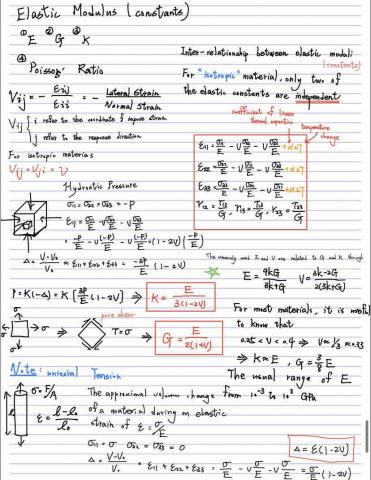 Elastic Modulus (constants)
① E ② G ③ K
④ Poisson's Ratio
νij = - εij/εii = - Lateral Strain/Normal Strain
νij { i refer to the coordinate of impose strain
j refer to the response direction
For isotropic materials
νij = νji = ν
Inter-relationship between elastic moduli
(constants)
For "isotropic" material, only two of
the elastic constants are independent
coefficient of linear
thermal expansion
temperature
change
ε11 = σ11/E - ν σ22/E - ν σ33/E + αΔT
ε22 = σ22/E - ν σ11/E - ν σ33/E + αΔT
ε33 = σ33/E - ν σ11/E - ν σ22/E + αΔT
r12 = τ12/G, r13 = τ13/G, r23 = τ23/G
Hydrostatic Pressure
σ11 = σ22 = σ33 = -P
ε11 = σ11/E - ν σ22/E - ν σ33/E
= -P/E - ν(-P)/E - ν(-P)/E = (1-2ν)(-P/E)
Δ = V-V₀/V₀ ≈ ε11 + ε22 + ε33 = -3P/E (1-2ν)
The commonly used E and ν are related to G and K through
E = 9KG/3K+G ν = 3K-2G/2(3K+G)
P = K(-Δ) = K [3P/E (1-2ν)] ⇒ K = E/3(1-2ν)
pure shear
σ σ σ ⇒ τ = σ ⇒ G = E/2(1+ν)
For most materials, it is useful
to know that
0.25 < ν < 0.4 ⇒ ν ≈ 1/3 ≈ 0.33
⇒ K ≈ E, G = 3/8 E
The usual range of E
from 10⁻³ to 10³ GPa
Note: uniaxial Tension
σ = F/A
ε = l-l₀/l₀
The approximal volume change
of a material during an elastic
strain of ε = σ/E
σ11 = σ σ22 = σ33 = 0
Δ = ε(1-2ν)
Δ = V-V₀/V₀ = ε11 + ε22 + ε33 = σ/E - ν σ/E - ν σ/E = σ/E (1-2ν)